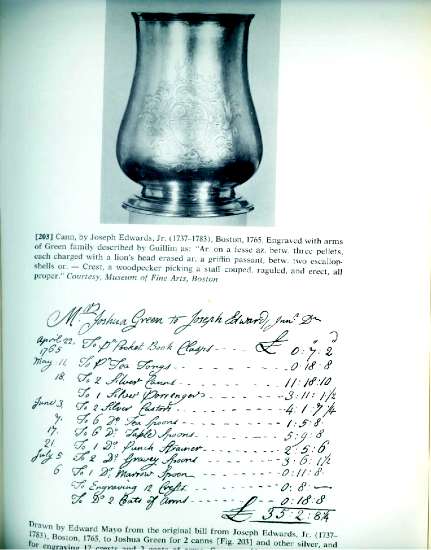 [203] Cann, by Joseph Edwards, Jr. (1737–1783), Boston, 1765. Engraved with arms
of Green family described by Guillim as: "Ar. on a fesse az. betw. three pellets,
each charged with a lion's head erased ar. a griffin passant, betw. two escallop-
shells or. — Crest, a woodpecker picking a staff couped, raguled, and erect, all
proper." Courtesy, Museum of Fine Arts, Boston
Mr Joshua Green to Joseph Edwards, Junr Dr
April 22, To Pr Pocket Book Clasps £ 0:7:2
1765
May 11 To Pr Tea Tongs 0:18:8
18. To 2 Silver Canns 11:18:10
To 1 Silver Porrenger 3:11:1/2
June 3, To 2 Silver Castors 4:1:7 1/4
7. To 6 Do Tea Spoons 1:5:8
17. To 6 Do Table Spoons 5:9:8
21. To 1 Do Punch Strainer 2:5:6
July 5 To 2 Do Gravey Spoons 3:6:1/2
6 To 1 Do Marrow Spoon 0:11:8
To Engraving 12 Crests 0:8:—
To Do 2 Coats of Arms 0:18:8
£ 35:2:8 1/4
Drawn by Edward Mayo from the original bill from Joseph Edwards, Jr. (1737–
1783), Boston, 1765, to Joshua Green for 2 canns [Fig. 203] and other silver, and
for engraving 12 crests and 2 coats of arms.